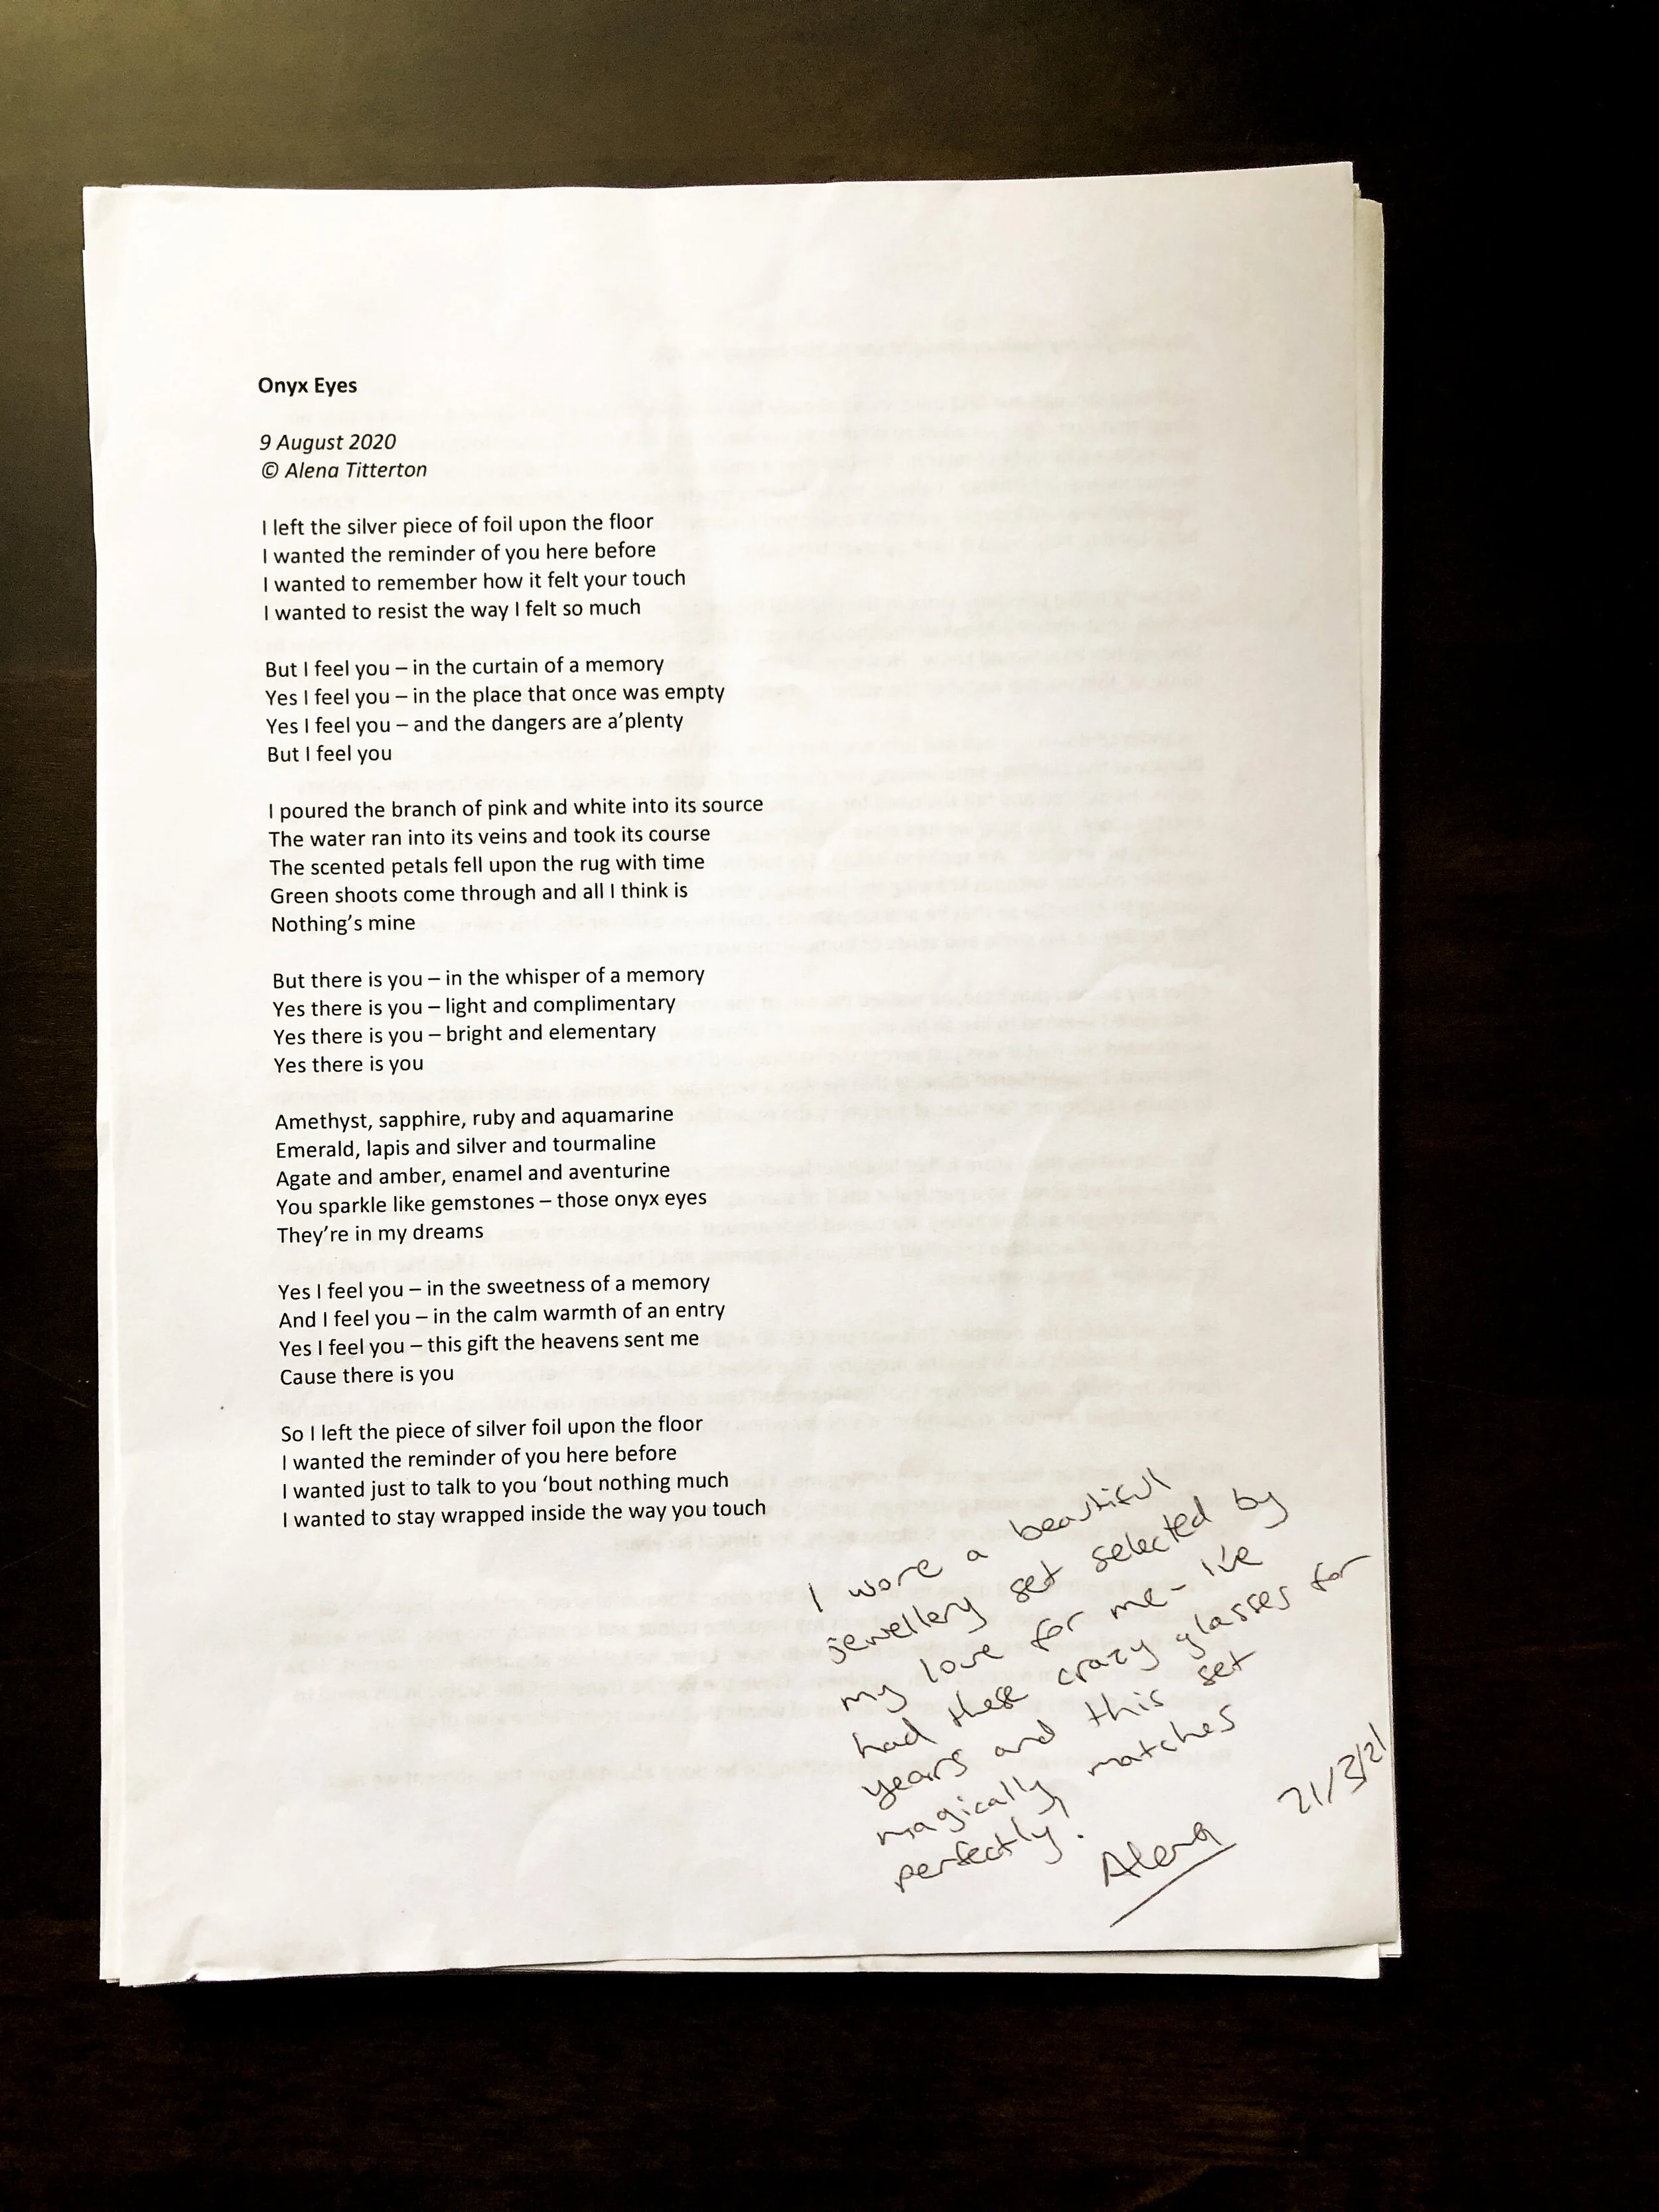 Onyx Eyes
9 August 2020
© Alena Titterton
I left the silver piece of foil upon the floor
I wanted the reminder of you here before
I wanted to remember how it felt your touch
I wanted to resist the way I felt so much
But I feel you – in the curtain of a memory
Yes I feel you – in the place that once was empty
Yes I feel you – and the dangers are a’plenty
But I feel you
I poured the branch of pink and white into its source
The water ran into its veins and took its course
The scented petals fell upon the rug with time
Green shoots come through and all I think is
Nothing’s mine
But there is you – in the whisper of a memory
Yes there is you – light and complimentary
Yes there is you – bright and elementary
Yes there is you
Amethyst, sapphire, ruby and aquamarine
Emerald, lapis and silver and tourmaline
Agate and amber, enamel and aventurine
You sparkle like gemstones – those onyx eyes
They’re in my dreams
Yes I feel you – in the sweetness of a memory
And I feel you – in the calm warmth of an entry
Yes I feel you – this gift the heavens sent me
Cause there is you
So I left the piece of silver foil upon the floor
I wanted the reminder of you here before
I wanted just to talk to you ‘bout nothing much
I wanted to stay wrapped inside the way you touch
I wore a beautiful
jewellery set selected by
my love for me - I've
had these crazy glasses for
years and this set
magically matches
perfectly!
Alena
21/3/21